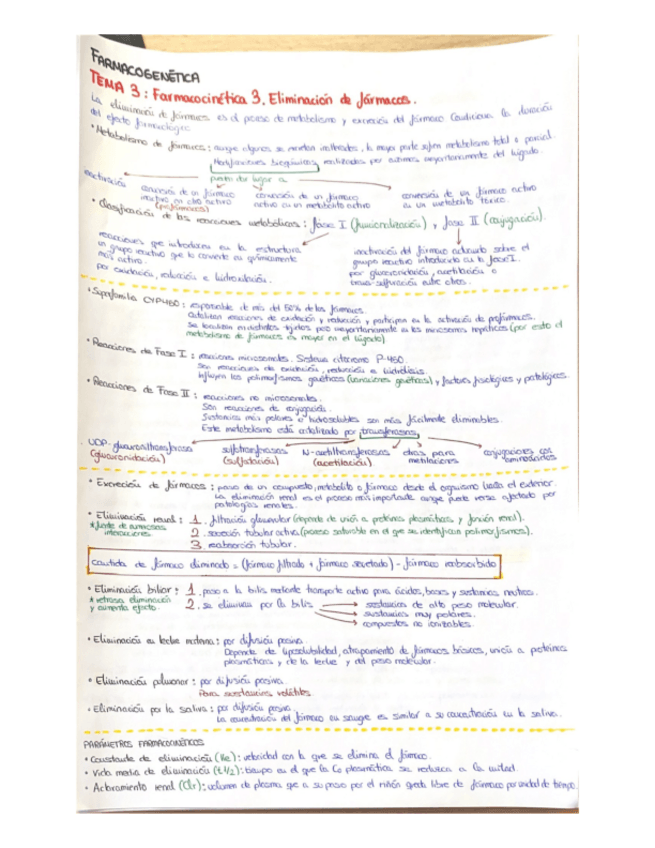 FARMACOGENÉTICA
TEMA 3: Farmacocinética 3. Eliminación de fármacos.
La eliminación de fármacos es el proceso de metabolismo y excreción del fármaco. Condiciona la duración
del efecto farmacológico
• Metabolismo de fármacos: aunque algunos se excretan inalterados, la mayor parte sufren metabolismo total o parcial.
Modificaciones bioquímicas realizadas por enzimas mayoritariamente del hígado.
puede dar lugar a
inactivación
conversión de un fármaco inactivo en otro activo (profármacos)
conversión de un fármaco activo en un metabolito activo
conversión de un fármaco activo en un metabolito tóxico.
• Clasificación de las reacciones metabólicas: fase I (funcionalización) y fase II (conjugación).
reacciones que introducen en la estructura
un grupo reactivo que lo convierte en químicamente
más activo.
por oxidación, reducción e hidroxilación.
inactivación del fármaco actuando sobre el
grupo reactivo introducido en la fase I.
por glucuronidación, acetilación o
trans-sulfuración entre otros.
• Superfamilia CYP450: responsable de más del 50% de los fármacos.
Catalizan reacciones de oxidación y reducción y participan en la activación de profármacos.
Se localizan en distintos tejidos pero mayoritariamente en los microsomas hepáticos (por esto el
metabolismo de fármacos es mayor en el hígado)
• Reacciones de Fase I: reacciones microsomales. Sistema citocromo P-450.
Son reacciones de oxidación, reducción e hidrólisis.
Influyen los polimorfismos genéticos (variaciones genéticas) y factores fisiológicos y patológicos.
• Reacciones de Fase II: reacciones no microsomales.
Son reacciones de conjugación.
Sustancias más polares o hidrosolubles son más fácilmente eliminables.
Este metabolismo está catalizado por transferasas
UDP-glucuroniltransferasa (glucuronidación)
sulfotransferasas (sulfatación)
N-acetiltransferasas (acetilación)
otras para metilaciones
conjugaciones con aminoácidos
• Excreción de fármacos: paso de un compuesto, metabolito o fármaco desde el organismo hasta el exterior.
La eliminación renal es el proceso más importante aunque puede verse afectado por
patologías renales.
• Eliminación renal: 1. filtración glomerular (depende de unión a proteínas plasmáticas y función renal).
*fuente de numerosas interacciones
2. secreción tubular activa (proceso saturable en el que se identifican polimorfismos).
3. reabsorción tubular.
cantidad de fármaco eliminado = (fármaco filtrado + fármaco secretado) - fármaco reabsorbido
• Eliminación biliar: 1. paso a la bilis mediante transporte activo para ácidos, bases y sustancias neutras.
*retrasa eliminación y aumenta efecto.
2. se eliminan por la bilis
sustancias de alto peso molecular.
sustancias muy polares.
compuestos no ionizables.
• Eliminación en leche materna: por difusión pasiva.
Depende de liposolubilidad, atrapamiento de fármacos básicos, unión a proteínas
plasmáticas y de la leche y del peso molecular.
• Eliminación pulmonar: por difusión pasiva.
Para sustancias volátiles.
• Eliminación por la saliva: por difusión pasiva.
La concentración del fármaco en sangre es similar a su concentración en la saliva.
PARÁMETROS FARMACOCINÉTICOS
• Constante de eliminación (Ke): velocidad con la que se elimina el fármaco.
• Vida media de eliminación (t1/2): tiempo en el que la Cp plasmática se reduce a la mitad
• Aclaramiento renal (Clr): volumen de plasma que a su paso por el riñón queda libre de fármaco por unidad de tiempo.